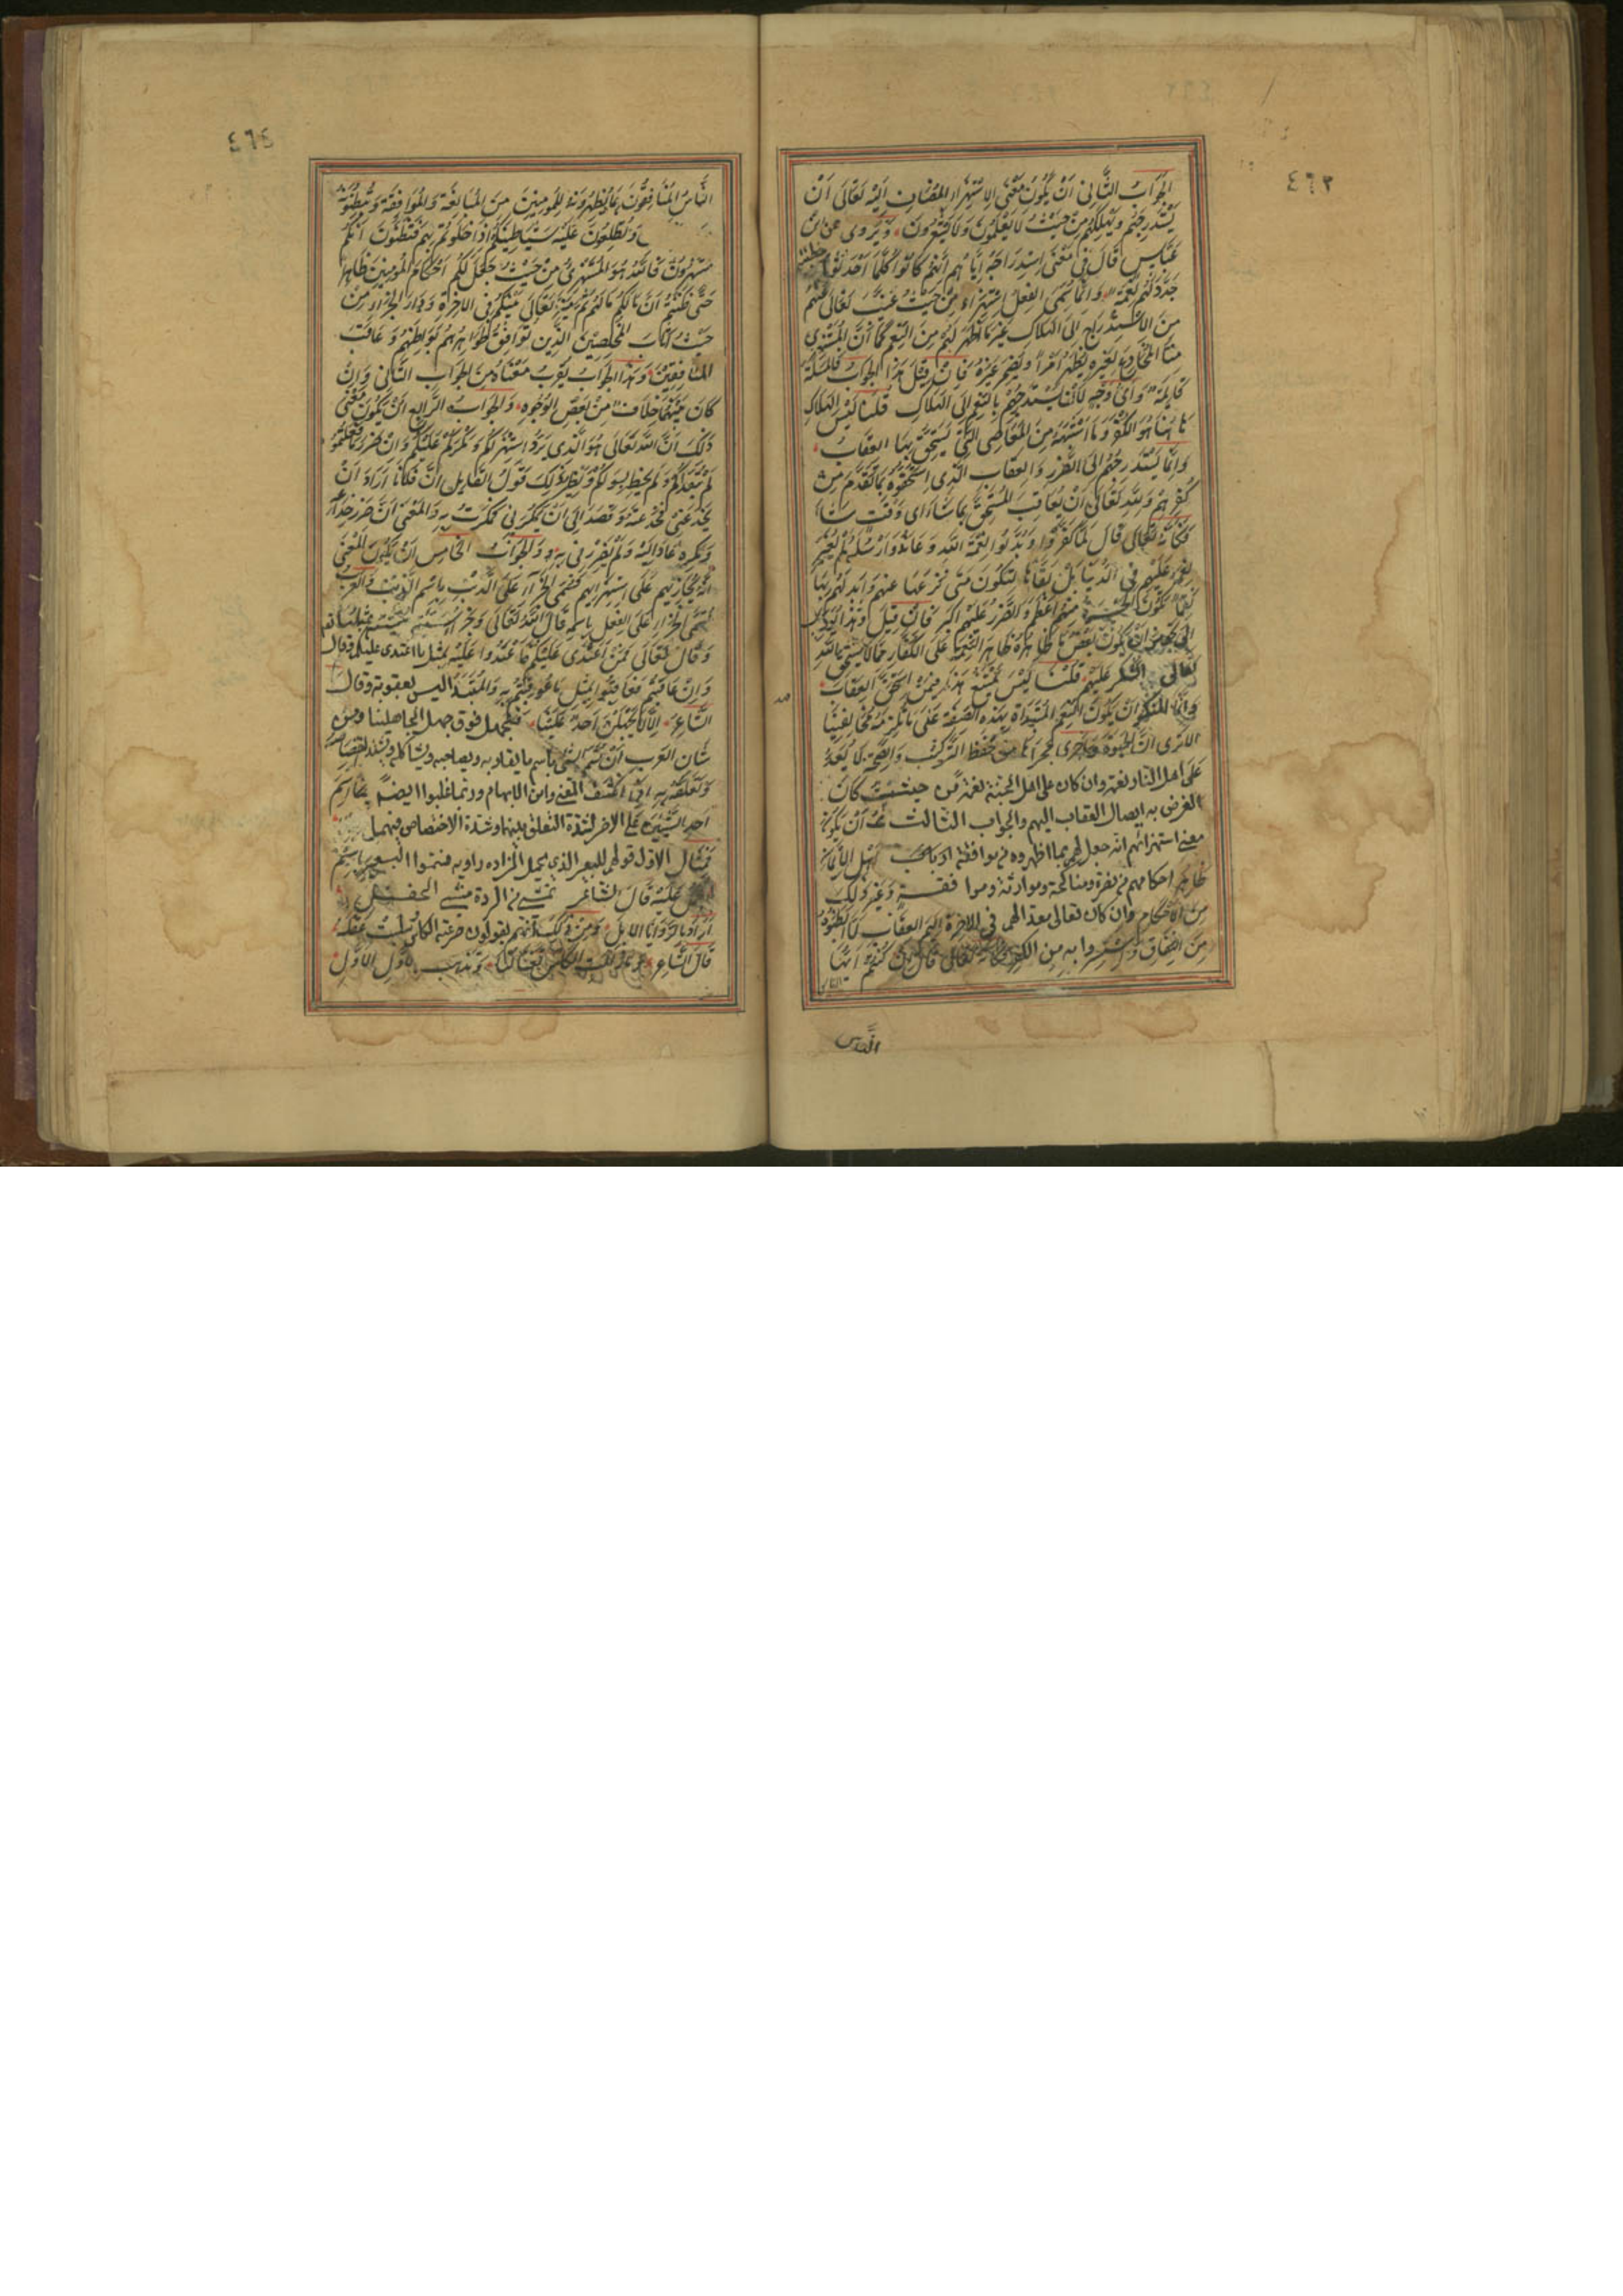 ٤٦٣
الجَوَابُ الثَّانِي أَنْ يَكُونَ مَعْنَى الِاسْتِهْزَاءِ المُضَافِ إِلَيْهِ تَعَالَى أَنْ
يَسْتَدْرِجَهُمْ وَيُهْلِكَهُمْ مِنْ حَيْثُ لَا يَعْلَمُونَ وَلَا يَشْعُرُونَ وَيُرْوَى عَنِ ابْنِ
عَبَّاسٍ قَالَ فِي مَعْنَى اسْتِدْرَاجِهِ إِيَّاهُمْ أَنَّهُمْ كَانُوا كُلَّمَا أَحْدَثُوا خطيئة
جَدَّدَ لَهُمْ نِعْمَةً وَإِنَّمَا سُمِّيَ الفِعْلُ اسْتِهْزَاءً مِنْ حَيْثُ غَيَّبَ تَعَالَى عَنْهُمْ
مِنَ الِاسْتِدْرَاجِ إِلَى الهَلَاكِ غَيْرَ مَا أَظْهَرَ لَهُمْ مِنَ النِّعَمِ كَمَا أَنَّ المُسْتَهْزِئَ
مِنَّا المُخَادِعَ لِغَيْرِهِ يُظْهِرُ أَمْرًا وَيُضْمِرُ غَيْرَهُ فَإِنْ قِيلَ هَذَا الجَوَابُ فَالمَسْأَلَةُ
قَائِمَةٌ وَأَيُّ وَجْهٍ لِأَنْ يَسْتَدْرِجَهُمْ بِالنِّعَمِ إِلَى الهَلَاكِ قُلْنَا لَيْسَ الهَلَاكُ
هَاهُنَا هُوَ الكُفْرُ وَمَا أَشْبَهَهُ مِنَ المَعَاصِي الَّتِي يُسْتَحَقُّ بِهَا العِقَابُ
وَإِنَّمَا يَسْتَدْرِجُهُمْ إِلَى الضَّرَرِ وَالعِقَابِ الَّذِي اسْتَحَقُّوهُ بِمَا تَقَدَّمَ مِنْ
كُفْرِهِمْ وَلِلَّهِ تَعَالَى أَنْ يُعَاقِبَ المُسْتَحِقَّ بِمَا شَاءَ أَيَّ وَقْتٍ شَاءَ
فَكَأَنَّهُ تَعَالَى قَالَ لَمَّا كَفَرُوا وَبَدَّلُوا نِعْمَةَ اللَّهِ وَعَانَدُوا رُسُلَهُ لَمْ يُغَيِّرْ
نِعَمَهُ عَلَيْهِمْ فِي الدُّنْيَا بَلْ أَبْقَاهَا لِتَكُونَ مَتَى نَزَعَهَا عَنْهُمْ وَأَبْدَلَهُمْ بِهَا
نِقَمًا تَكُونُ الحَسْرَةُ مِنْهُمْ أَعْظَمَ وَالضَّرَرُ عَلَيْهِمْ أَكْبَرَ فَإِنْ قِيلَ وَهَذَا يؤدي
إِلَى تجويز أَنْ يَكُونَ بَعْضُ مَا ظَاهِرُهُ ظَاهِرُ النِّعْمَةِ عَلَى الكُفَّارِ مِمَّا لَا يَسْتَحِقُّ بِهِ اللَّهُ
تَعَالَى الشكر عَلَيْهِمْ قُلْنَا لَيْسَ يَمْتَنِعُ هَذَا فِيمَنِ اسْتَحَقَّ العِقَابَ
وَإِنَّمَا المُنْكَرُ أَنْ يَكُونَ النِّعَمُ المُبْتَدَأَةُ بِهَذِهِ الصِّفَةِ عَلَى مَا يَلْزَمُهُ مُخَالِفُنَا
أَلَا تَرَى أَنَّ الحَيَوةَ وَمَا جَرَى مَجْرَاهَا مِنْ حِفْظِ التَّرْكِيبِ وَالصِّحَّةِ لَا يُعَدُّ
عَلَى اهل النار نعمة وان كان على اهل الجنة نعمة من حيث كان
الغرض به ايصال العقاب اليهم والجواب الثالث أَنْ يَكُونَ
معنى استهزائهم انه جعل لهم بما اظهروه من موافقة أَهْلِ الإِيمَانِ
ظاهر احكامهم من نصرة ومناكحة وموارثة وموافقة وَغَيْرِ ذَلِكَ
مِنَ الأَحْكَامِ وان كان تعالى معدا لهم في الآخرة أليم العقاب لِمَا أَبْطَنُوهُ
مِنَ النِّفَاقِ وَاسْتَسَرُّوا بِهِ مِنَ الكفر فكأنه تَعَالَى قَالَ إِنْ كُنْتُمْ أَيُّهَا
النَّاس
٤٦٤
النَّاسُ المُنَافِقُونَ بِمَا تُظْهِرُونَهُ لِلْمُؤْمِنِينَ مِنَ المُتَابَعَةِ وَالمُوَافَقَةِ وَتُبْطِنُونَهُ
وَتُطْلِعُونَ عَلَيْهِ شَيَاطِينَكُمْ إِذَا خَلَوْتُمْ بِهِمْ فَتَظُنُّونَ أَنَّكُمْ
مُسْتَهْزِؤُنَ فَاللَّهُ هُوَ المُسْتَهْزِئُ مِنْ حَيْثُ جَعَلَ لَكُمْ أَحْكَامَ المُؤْمِنِينَ ظَاهِرًا
حَتَّى ظَنَنْتُمْ أَنَّ مَا لَكُمْ مَا لَهُمْ ثُمَّ مَيَّزَ تَعَالَى بَيْنَكُمْ فِي الآخِرَةِ وَدَارِ الجَزَاءِ مِنْ
حَيْثُ أَثَابَ المُخْلِصِينَ الَّذِينَ تُوَافِقُ ظَوَاهِرُهُمْ بَوَاطِنَهُمْ وَعَاقَبَ
المُنَافِقِينَ وَهَذَا الجَوَابُ يَقْرُبُ مَعْنَاهُ مِنَ الجَوَابِ الثَّانِي وَإِنْ
كَانَ بَيْنَهُمَا خِلَافٌ مِنْ بَعْضِ الوُجُوهِ وَالجَوَابُ الرَّابِعُ أَنْ يَكُونَ مَعْنَى
ذَلِكَ أَنَّ اللَّهَ تَعَالَى هُوَ الَّذِي يَرُدُّ اسْتِهْزَاءَكُمْ وَمَكْرَكُمْ عَلَيْكُمْ وَأَنَّ ضَرَرَ مَا فَعَلْتُمُوهُ
لَمْ يَتَعَدَّكُمْ وَلَمْ يُحِطْ بِسِوَاكُمْ وَنَظِيرُ ذَلِكَ قَوْلُ القَائِلِ إِنَّ فُلَانًا أَرَادَ أَنْ
يَخْدَعَنِي فَخَدَعْتُهُ وَقَصَدَ إِلَى أَنْ يَمْكُرَ بِي فَمَكَرْتُ بِهِ وَالمَعْنَى أَنَّ ضَرَرَ خِدَاعِهِ
وَمَكْرِهِ عَادَ إِلَيْهِ وَلَمْ يَضْرُرْنِي بِهِ وَالجَوَابُ الخَامِسُ أَنْ يَكُونَ المَعْنَى
أَنَّهُ يُجَازِيهِمْ عَلَى اسْتِهْزَائِهِمْ فَسَمَّى الجَزَاءَ عَلَى الذَّنْبِ بِاسْمِ الذَّنْبِ وَالعَرَبُ
تُسَمِّي الجَزَاءَ عَلَى الفِعْلِ بِاسْمِهِ قَالَ اللَّهُ تَعَالَى وَجَزَاءُ سَيِّئَةٍ سَيِّئَةٌ مِثْلُهَا
وَقَالَ تَعَالَى فَمَنِ اعْتَدَى عَلَيْكُمْ فَاعْتَدُوا عَلَيْهِ بِمِثْلِ مَا اعتدى عليكم وقال
وَإِنْ عَاقَبْتُمْ فَعَاقِبُوا بِمِثْلِ مَا عُوقِبْتُمْ بِهِ وَالمُبْتَدَأ ليس بعقوبة وقال
الشَّاعِرُ أَلَا لَا يَجْهَلَنْ أَحَدٌ عَلَيْنَا فنجهل فوق جهل الجاهلينا ومن
شَأْنِ العَرَبِ أَنْ تُسَمِّيَ الشئ باسم ما يقاربه ويصاحبه ويشتد اختصاصه
وَتَعَلُّقُهُ بِهِ إِذَا انْكَشَفَ المعنى وامن الابهام وربما غلبوا ايضا اسم
أَحَدِ الشَّيْئَيْنِ عَلَى الآخر لشدة التعلق بينهما وشدة الاختصاص فيهما
فَمِثَالُ الاول قولهم للبعير الذي يحمل المزاده راويه فسموا البعير بِاسْمِ
عَلَيْهِ قَالَ الشاعر تمشي من الردة مشى الحفل
قَالَ الشَّاعِرُ وتذهب بالأول الأول